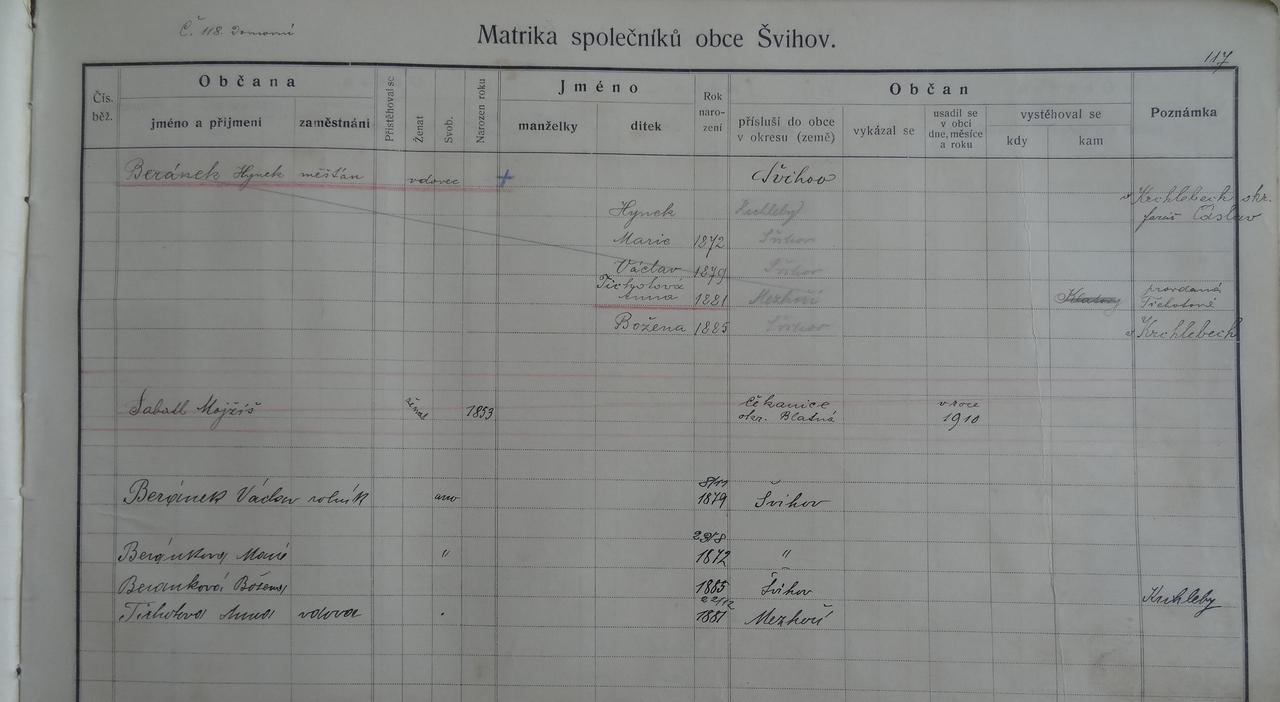 Č. 118. Domovní
Matrika společníků obce Švihov.
117
Čís. běž.
Občana
jméno a příjmení
zaměstnání
Přistěhoval se
Ženat
Svob.
Narozen roku
Jméno
manželky
dítek
Rok naro- zení
Občan
přísluší do obce v okresu (země)
vykázal se
usadil se v obci dne, měsíce a roku
vystěhoval se
kdy
kam
Poznámka
Beránek Hynek měšťan vdovec + Švihov
v Krchlebech okr.
Hynek Krchleby Čáslav
Marie 1872 Švihov
Václav 1879 Švihov
Tichotová provdaná
Anna 1881 Mezhoří Klatovy Tichotové
Božena 1885 Švihov v Krchlebech
Mojžíš ženat 1853 Čekanice v roce
okr. Blatná 1910
Beránek Václav rolník ano 8/11 1879 Švihov
29/8
Beránkova Marie " 1872 "
Beranková Božena 1885 Švihov Krchleby
22/12
Tichotova Anna vdova 1881 Mezhoří